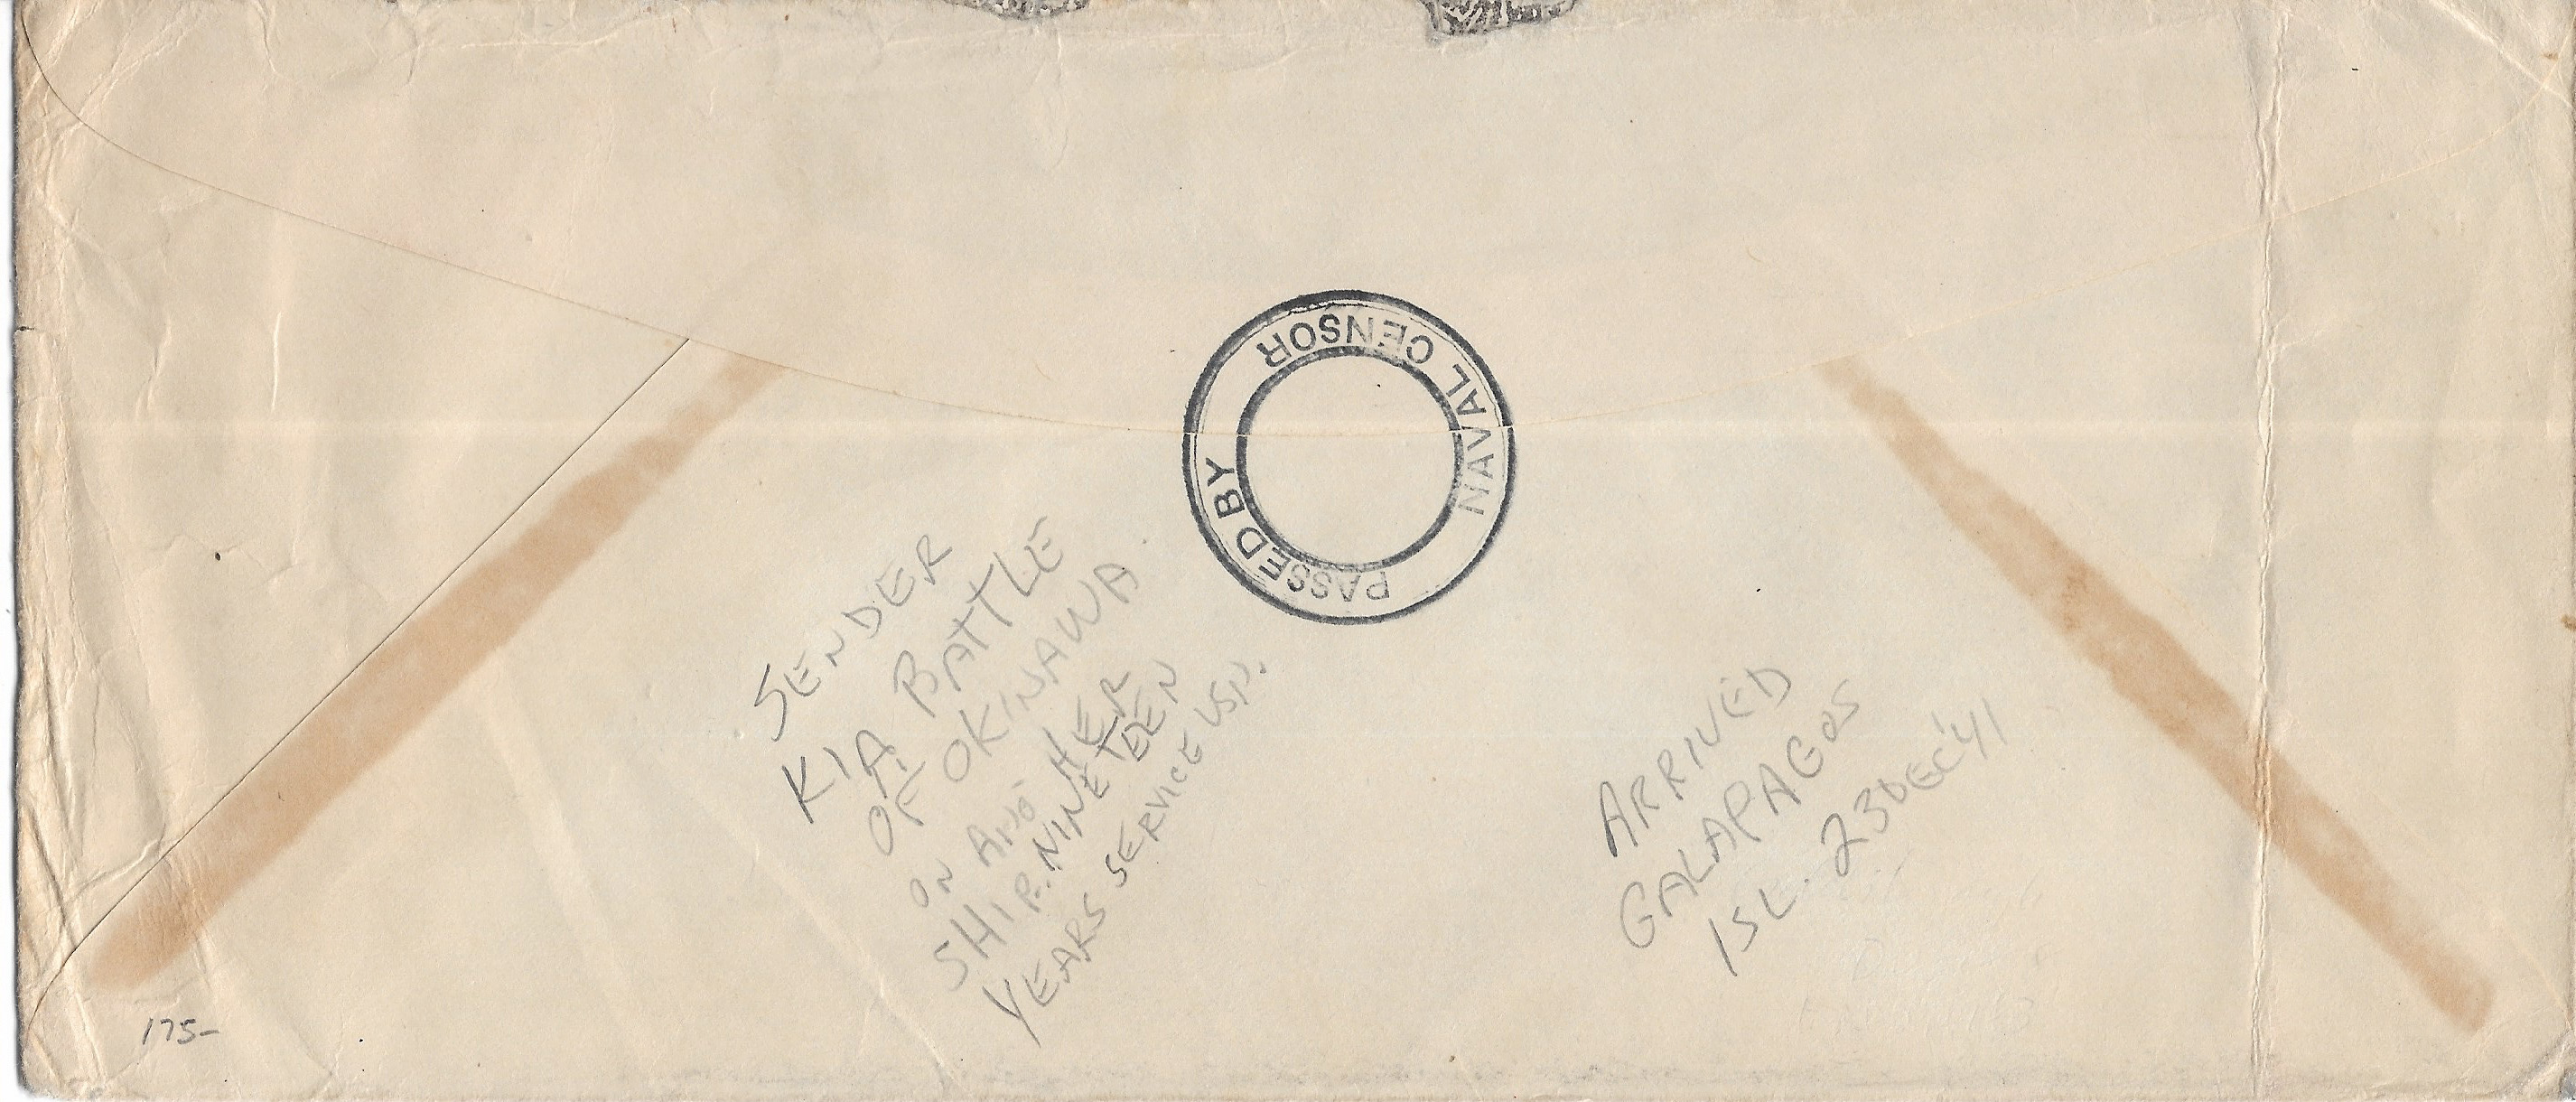 PASSED BY
NAVAL CENSOR
SENDER
KIA BATTLE
OF OKINAWA.
ON ANO HER
SHIP. NINETEEN
YEARS SERVICE
ARRIVED
GALAPAGOS
ISL. 23DEC'41
175-